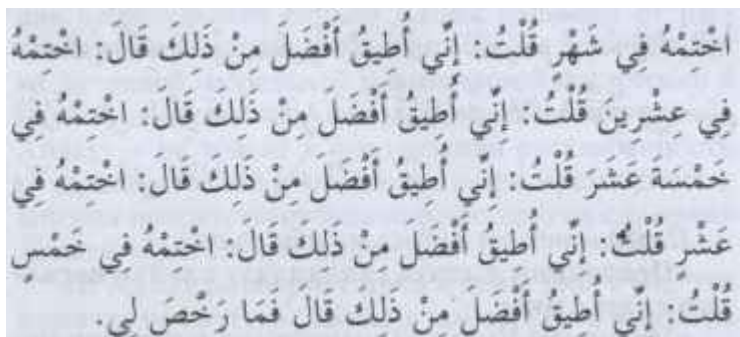 اخْتِمْهُ فِي شَهْرٍ قُلْتُ: إِنِّي أُطِيقُ أَفْضَلَ مِنْ ذَلِكَ قَالَ: اخْتِمْهُ
فِي عِشْرِينَ قُلْتُ: إِنِّي أُطِيقُ أَفْضَلَ مِنْ ذَلِكَ قَالَ: اخْتِمْهُ فِي
خَمْسَةَ عَشَرَ قُلْتُ: إِنِّي أُطِيقُ أَفْضَلَ مِنْ ذَلِكَ قَالَ: اخْتِمْهُ فِي
عَشْرٍ قُلْتُ: إِنِّي أُطِيقُ أَفْضَلَ مِنْ ذَلِكَ قَالَ: اخْتِمْهُ فِي خَمْسٍ
قُلْتُ: إِنِّي أُطِيقُ أَفْضَلَ مِنْ ذَلِكَ قَالَ فَمَا رَخَّصَ لِي.